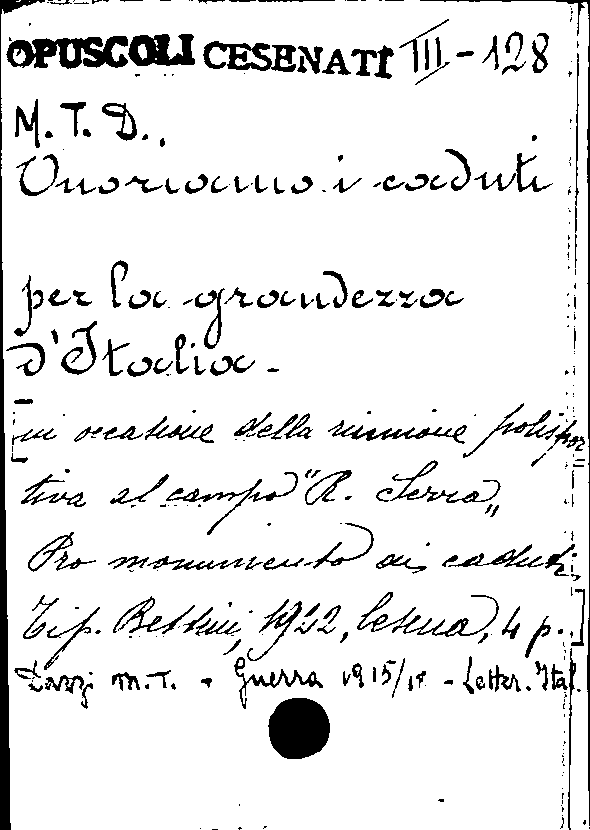 OPUSCOLI CESENATI III - 128
M. T. D.,
Onoriamo i caduti
per la grandezza
d'Italia -
[in occasione della riunione polispor=
tiva al campo "R. Serra„
Pro monumento ai caduti,
Tip. Bettini, 1922, Cesena, 4 p.]
M.T. - Guerra 1915/18 - Letter. Ital.